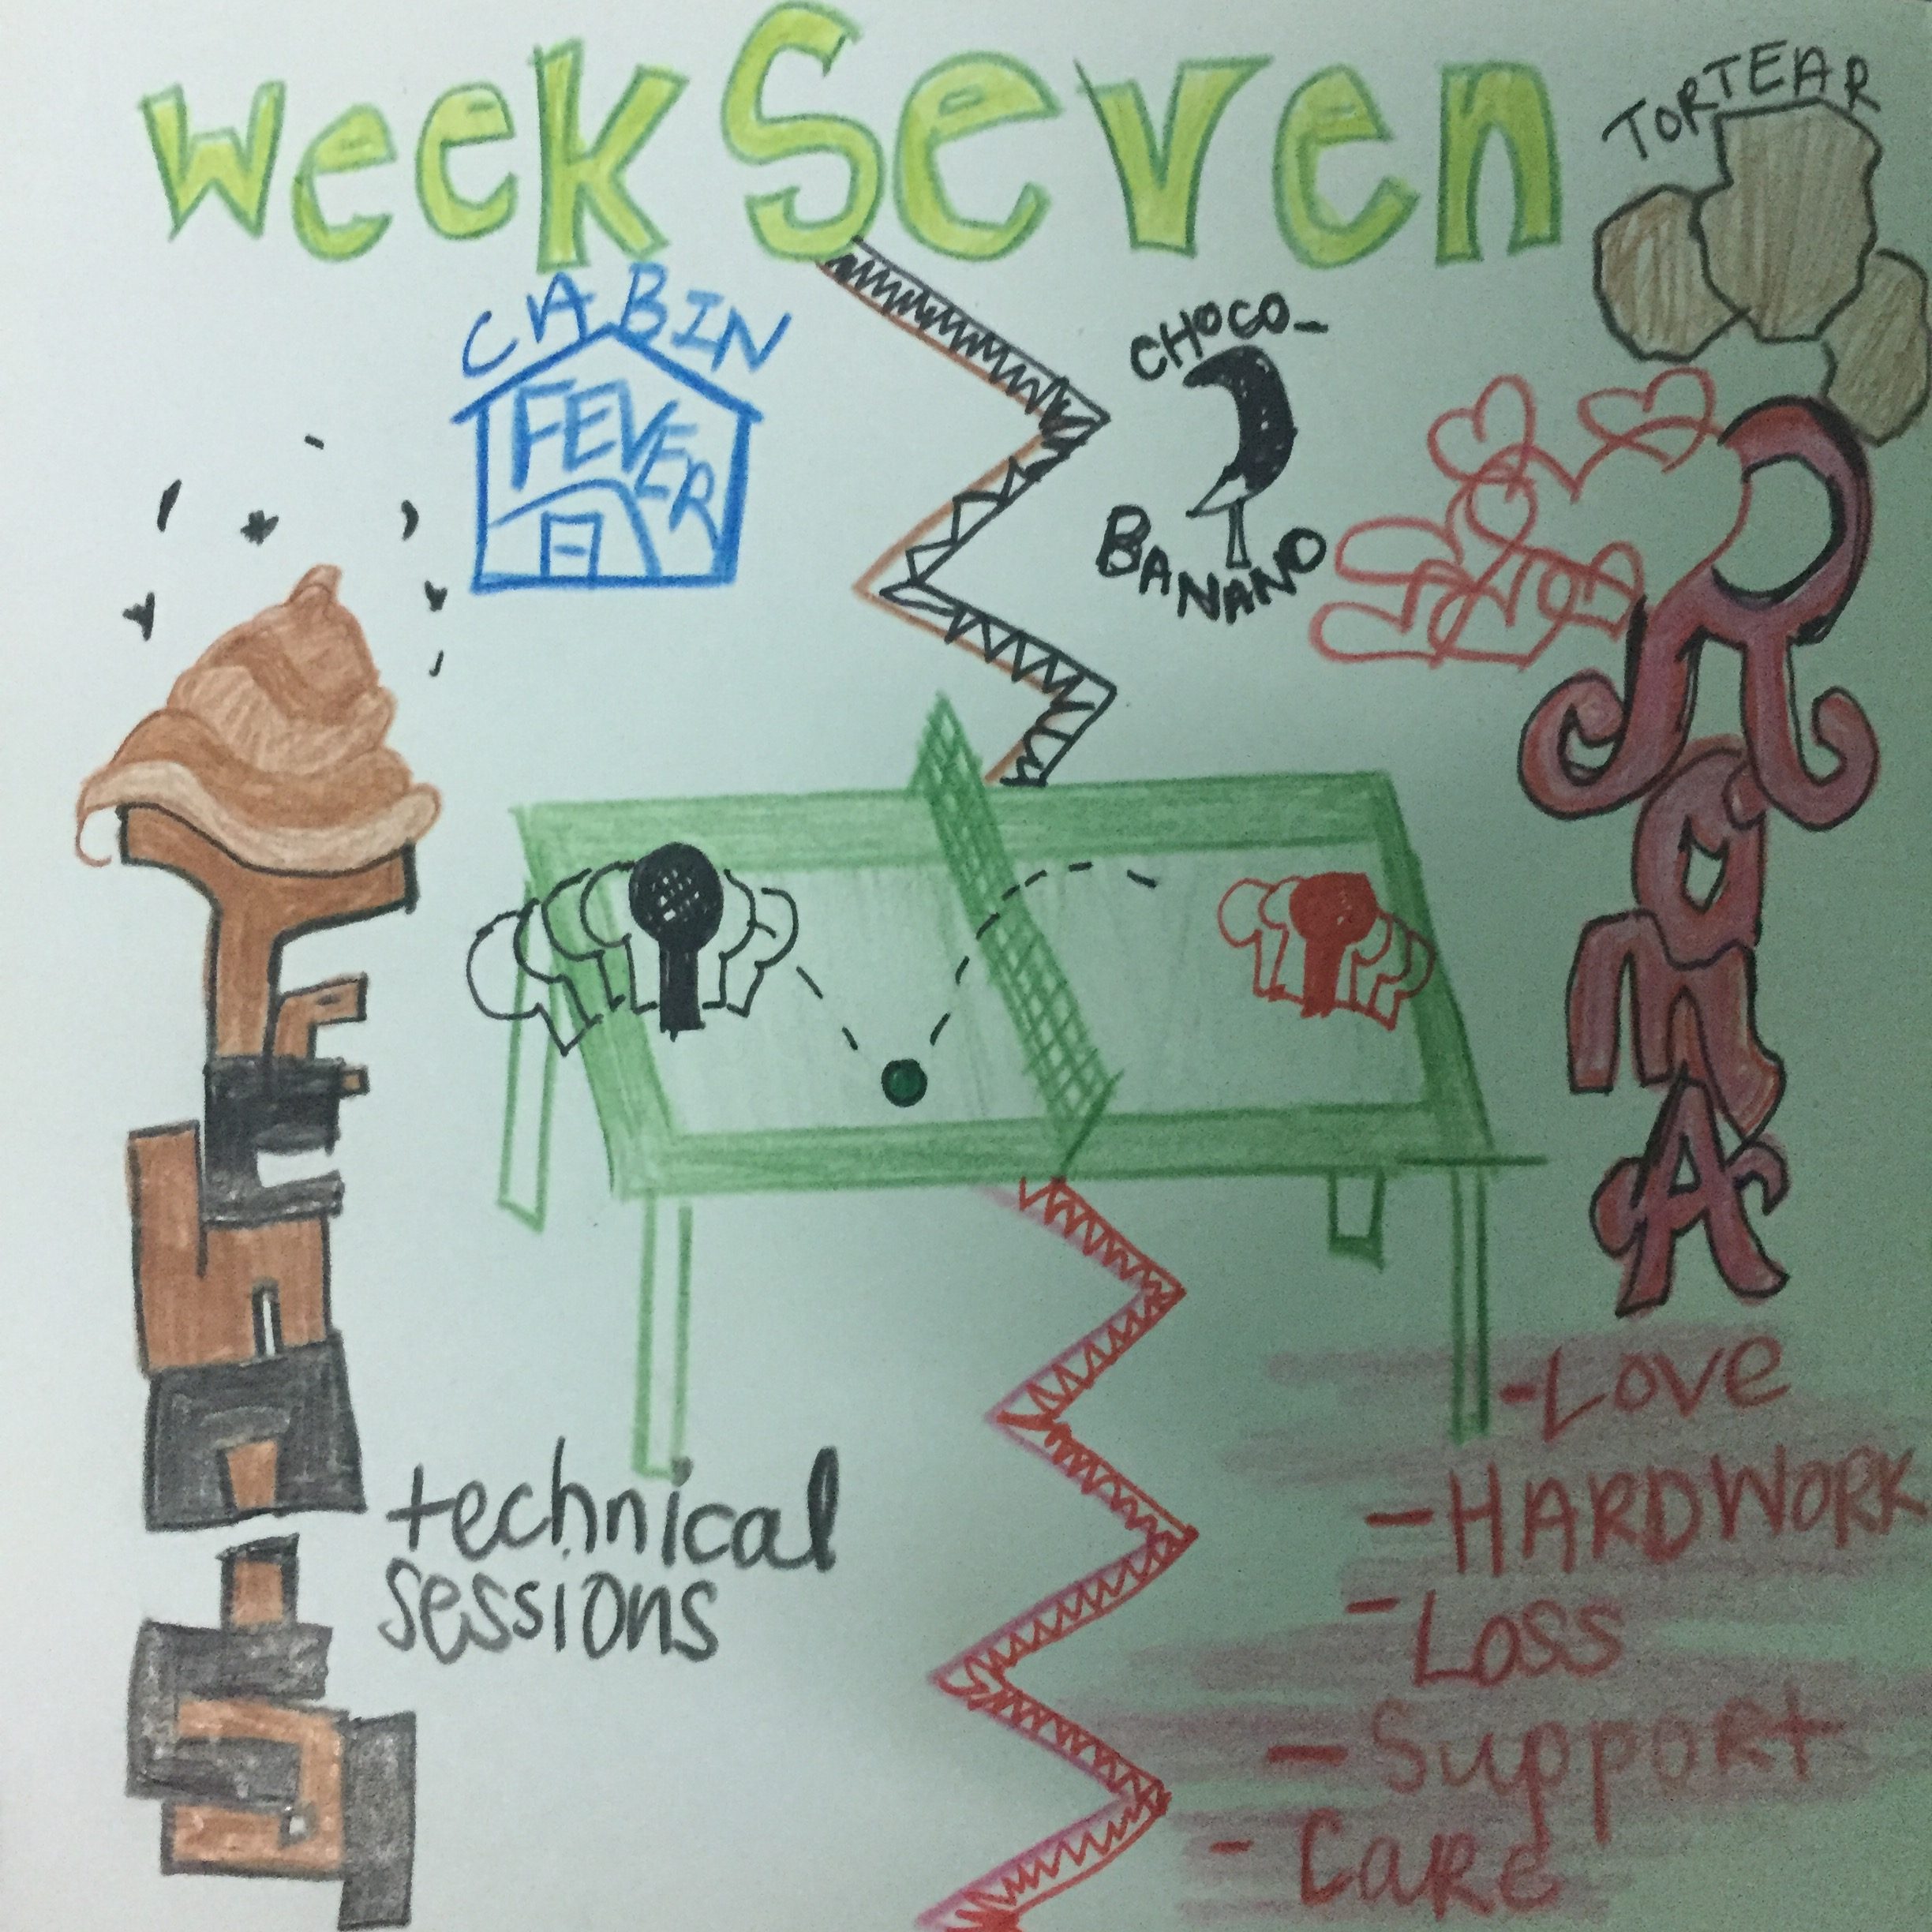 week Seven
TORTEAR
CABIN
FEVER
CHOCO-
BANANO
ROMA
technical
sessions
-Love
-HARDWORK
-Loss
-Support
-CaRe